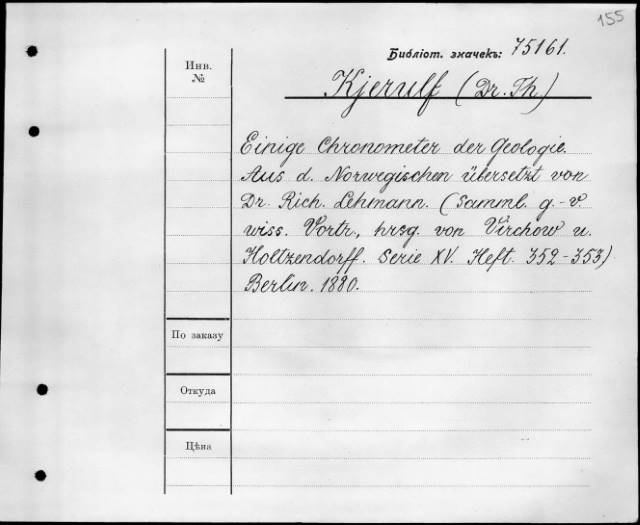 155
Библіот. значекъ: 75161.
Инв. №
Kjerulf (Dr. Th)
Einige Chronometer der Geologie.
Aus d. Norwegischen übersetzt von
Dr. Rich. Lehmann. (Samml. g.-v.
wiss. Vortr., hrsg. von Virchow u.
Holtzendorff. Serie XV. Heft. 352-353)
Berlin. 1880.
По заказу
Откуда
Цѣна